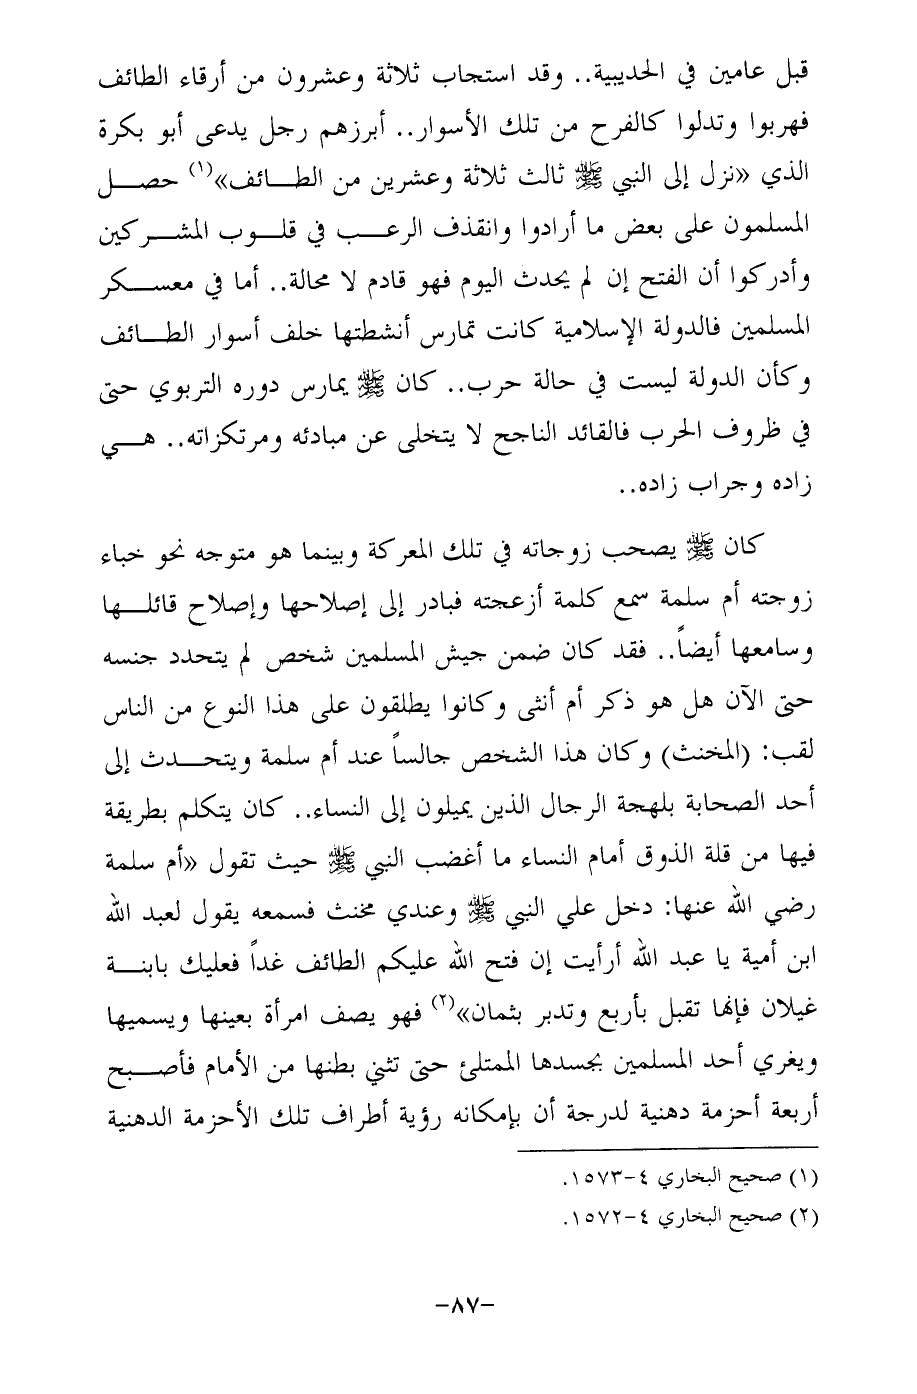 قبل عامين في الحديبية.. وقد استجاب ثلاثة وعشرون من أرقاء الطائف
فهربوا وتدلوا كالفرح من تلك الأسوار.. أبرزهم رجل يدعى أبو بكرة
الذي «نزل إلى النبي ﷺ ثالث ثلاثة وعشرين من الطـائف»(١) حصـل
المسلمون على بعض ما أرادوا وانقذف الرعـب في قلـوب المشـركين
وأدركوا أن الفتح إن لم يحدث اليوم فهو قادم لا محالة.. أما في معسـكر
المسلمين فالدولة الإسلامية كانت تمارس أنشطتها خلف أسوار الطـائف
وكأن الدولة ليست في حالة حرب.. كان ﷺ يمارس دوره التربوي حتى
في ظروف الحرب فالقائد الناجح لا يتخلى عن مبادئه ومرتكزاته.. هـي
زاده وجراب زاده..
كان ﷺ يصحب زوجاته في تلك المعركة وبينما هو متوجه نحو خباء
زوجته أم سلمة سمع كلمة أزعجته فبادر إلى إصلاحها وإصلاح قائلـها
وسامعها أيضاً.. فقد كان ضمن جيش المسلمين شخص لم يتحدد جنسه
حتى الآن هل هو ذكر أم أنثى وكانوا يطلقون على هذا النوع من الناس
لقب: (المخنث) وكان هذا الشخص جالساً عند أم سلمة ويتحـدث إلى
أحد الصحابة بلهجة الرجال الذين يميلون إلى النساء.. كان يتكلم بطريقة
فيها من قلة الذوق أمام النساء ما أغضب النبي ﷺ حيث تقول «أم سلمة
رضي الله عنها: دخل علي النبي ﷺ وعندي مخنث فسمعه يقول لعبد الله
ابن أمية يا عبد الله أرأيت إن فتح الله عليكم الطائف غداً فعليك بابنـة
غيلان فإنها تقبل بأربع وتدبر بثمان»(٢) فهو يصف امرأة بعينها ويسميها
ويغري أحد المسلمين بجسدها الممتلئ حتى تثني بطنها من الأمام فأصـبح
أربعة أحزمة دهنية لدرجة أن بإمكانه رؤية أطراف تلك الأحزمة الدهنية
(١) صحيح البخاري ٤-١٥٧٣.
(٢) صحيح البخاري ٤-١٥٧٢.
-٨٧-